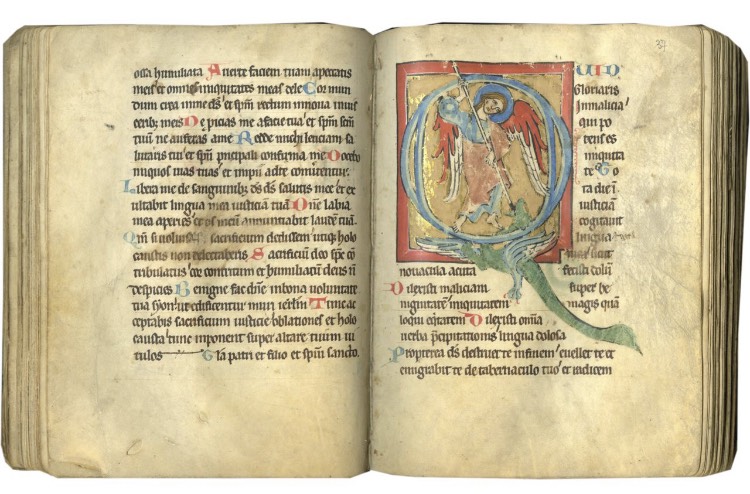 ossa humiliata Auerte faciem tuam apeccatis
meis et omnes iniquitates meas dele Cor mun
dum crea inme ds et spm rectum innoua inuis
cerib; meis Ne picias me afacie tua et spm scm
tuum ne auferas ame Redde michi leticiam sa
lutaris tui et spu pncipali confirma me Docebo
iniquos uias tuas et impii adte conuertentur
Libera me de sanguinib; ds ds salutis mee et ex
ultabit lingua mea iusticiam tuam Dne labia
mea aperies et os meum annuntiabit laude tuam
Qm si uoluisses sacrificium dedissem utiq; holo
caustis non delectaberis Sacrificium deo spc con
tribulatus cor contritum et humiliatum deus n
despicies Benigne fac dne inbona uoluntate
tua syon ut edificentur muri ierlm Tunc ac
ceptabis sacrificium iusticie oblationes et holo
causta tunc imponent super altare tuum ui
tulos Gla patri et filio et spui sancto.
37
QUID
Gloriaris
Inmalicia
qui po
tens es
iniquita
te To
ta die i
iusticiam
cogitauit
lingua
tua sicut
nouacula acuta fecisti dolu
Dilexisti maliciam super be
nignitatem iniquitatem magis quam
loqui eqitatem Dilexisti omia
uerba pcipitationis lingua dolosa
Propterea ds destruet te infinem euellet te et
emigrabit te de tabernaculo tuo et radicem